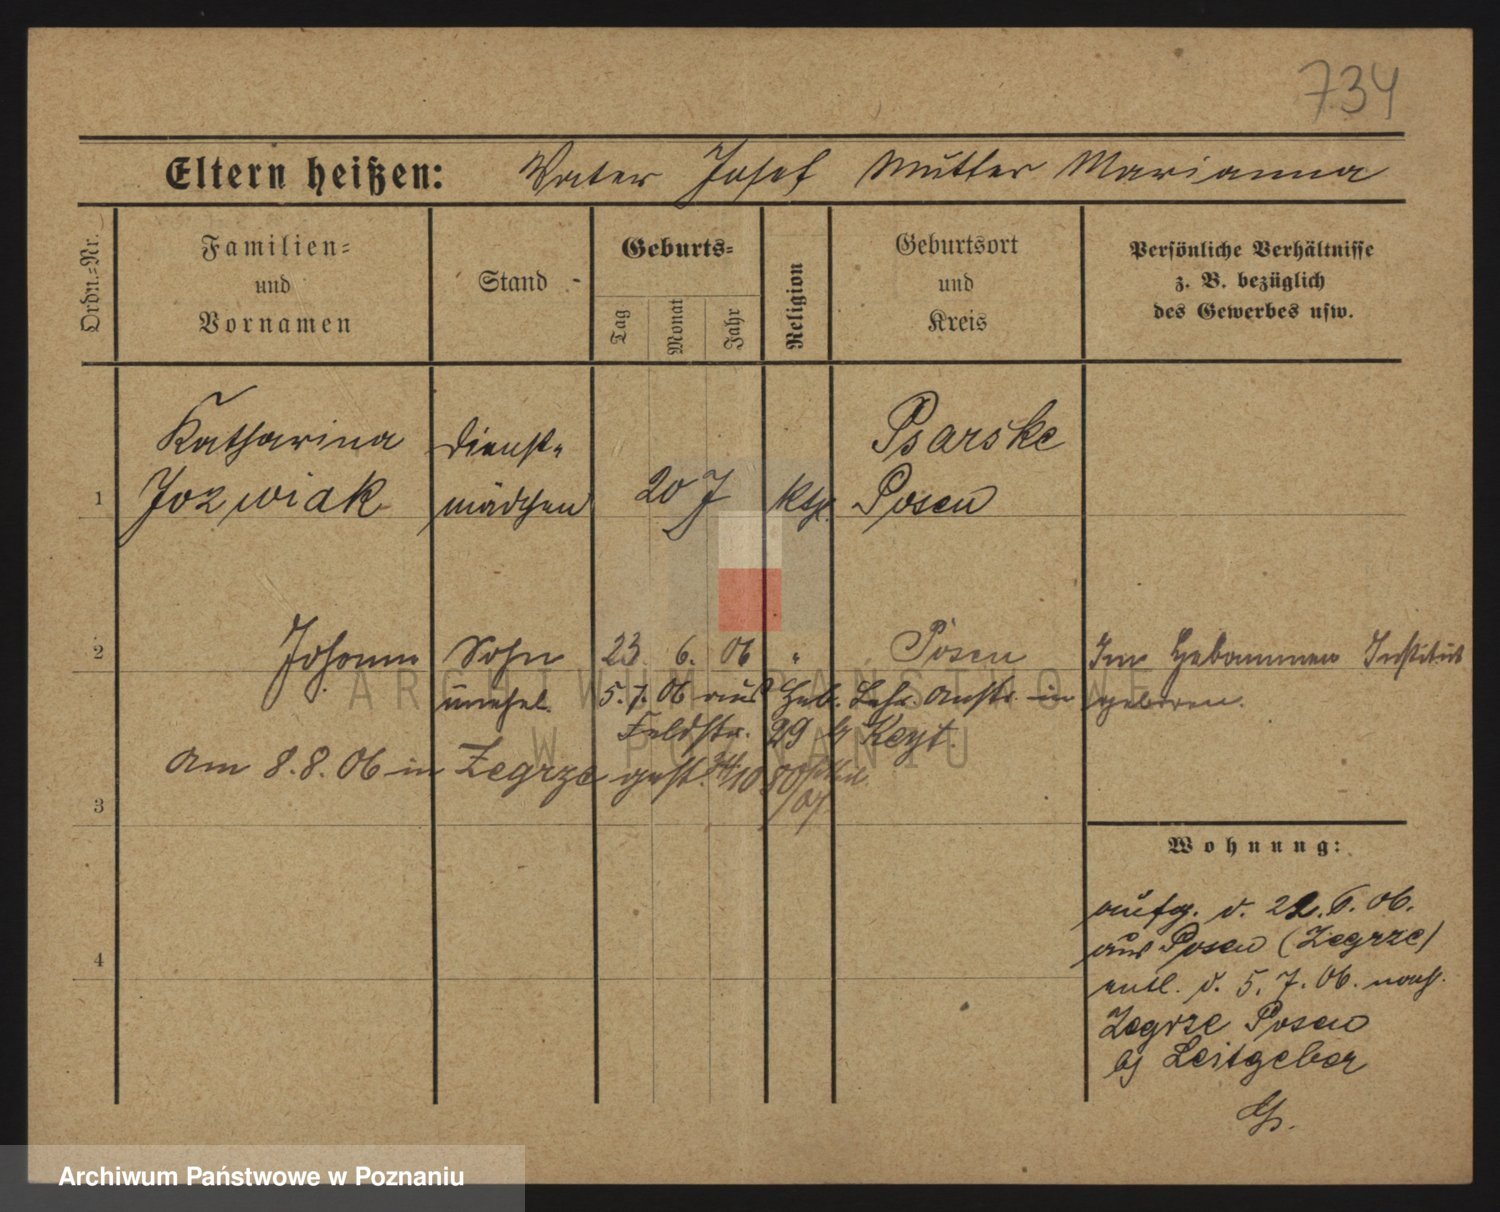 734
Eltern heißen: Vater Josef Mutter Marianna
Ordn.=Nr.
Familien=
und
Vornamen
Stand
Geburts=
Tag
Monat
Jahr
Religion
Geburtsort
und
Kreis
Persönliche Verhältnisse
z. B. bezüglich
des Gewerbes usw.
Katharina Dienst= Psarske
1 Jozwiak mädchen 20 J kth. Posen
2 Johann Sohn 23. 6. 06 " Posen Im Hebammen Institut
unehel. 5. 7. 06 aus Heb. Lehr Anst. in geboren.
Feldstr. 29 b/ Kezt.
am 8. 8. 06 in Zegrze gest.
3
Wohnung:
aufg. d. 22. 6. 06.
aus Posen (Zegrze)
4
entl. d. 5. 7. 06. nach
Zegrze Posen
b/ Leitgeber
ARCHIWUM PAŃSTWOWE
W POZNANIU
Archiwum Państwowe w Poznaniu